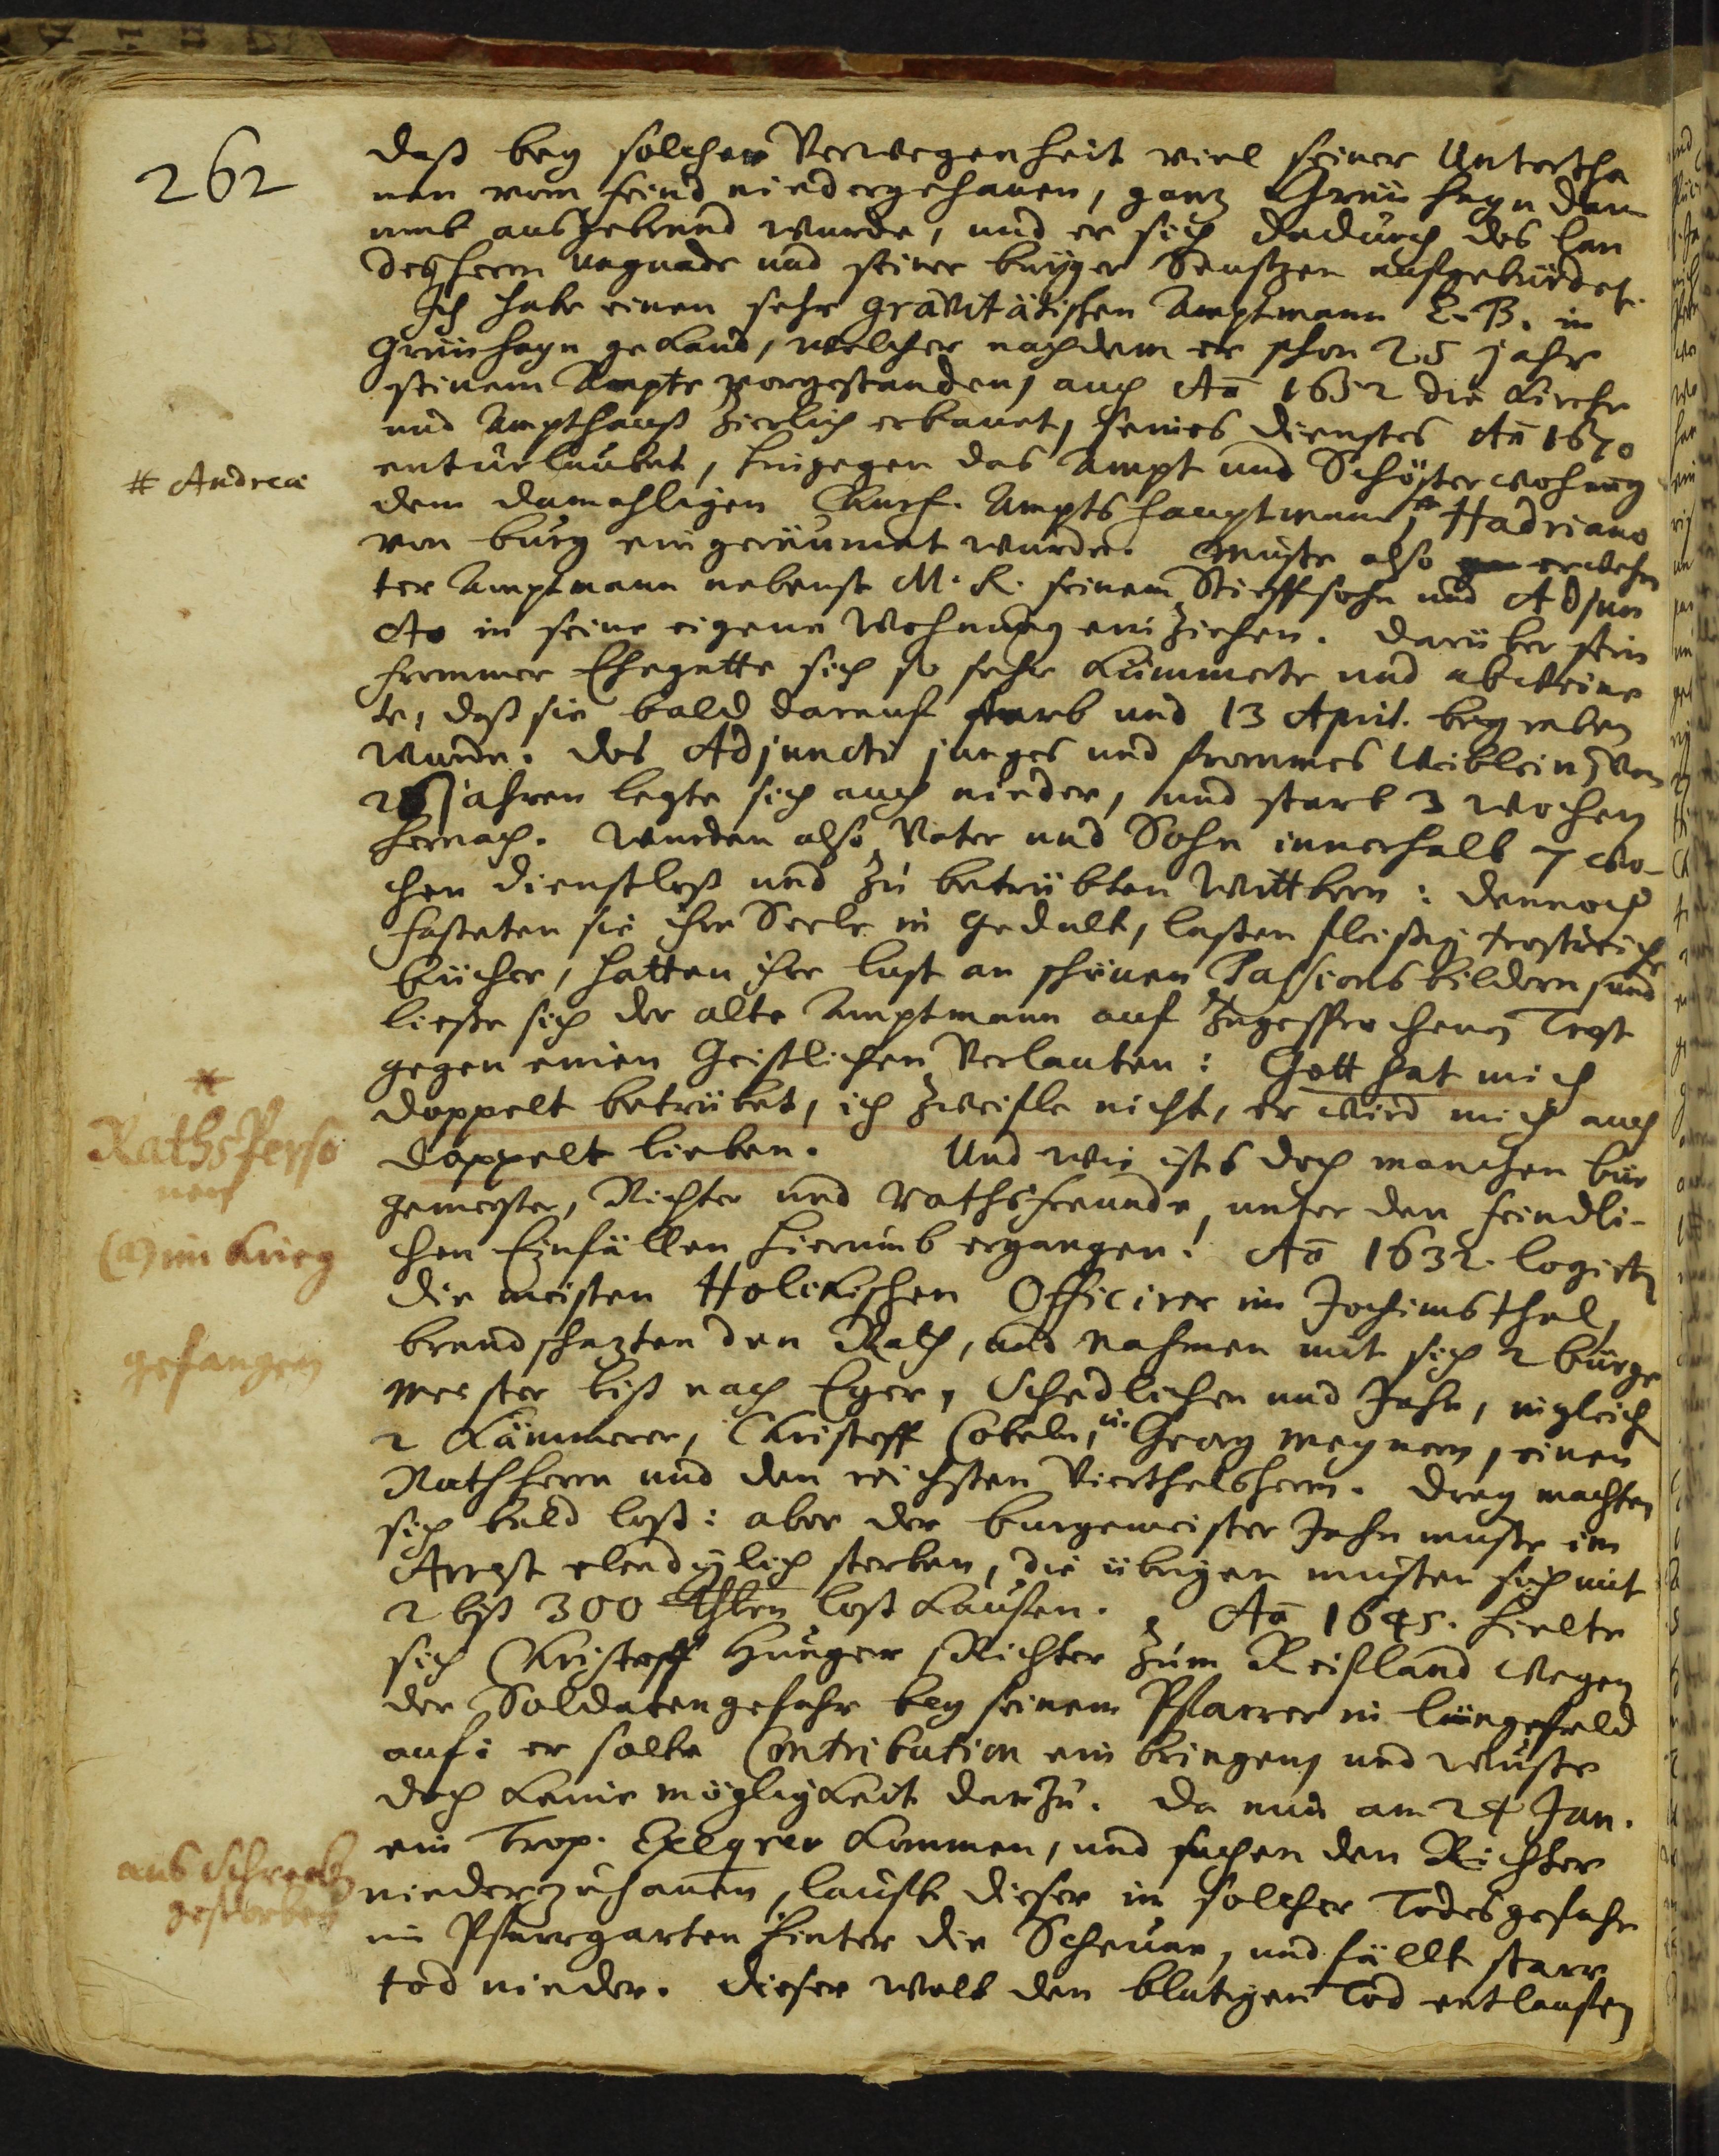 262
daß bey solcher Verwegenheit viel seiner Untertha
nen vom feind niedergehauen, ganz Grün hayn dar
umb ausgebrend wurde, und er sich dadurch des Lan
desherrn ungnade und seiner bürger Seufzen aufgebürdet.
Ich habe einen sehr gravitätischen Amptmann E. B. in
Grünhayn gekand, welcher nachdem er schon 25 jahr
seinem Ampte vorgestanden, auch Ao 1652 die Kirche
und Ampthauß zierlich erbauet, seines Dienstes Ao 1670
enturlaubet, hingegen das Ampt und Schösterwohnung
# Andrea
dem damahligen Churf. Ampts hauptmann, # Hadriano
von burg eingeräumet wurde. Muste also erwehn
ter Amptmann nebenst M. K. seinem Stieffsohn und Adjun
cto in seine eigene Wohnung einziehen. Darüber sein
frommer Ehegatte sich so sehr kümmerte und abweine
te, daß sie bald darauf starb und 13 April. begraben
wurde. Des Adjuncti junges und frommes Weiblein von
26 jahren legte sich auch nieder, und starb 3 wochen
hernach. Wurden also Vater und Sohn innerhalb 7 wo-
chen dienstloß und zu betrübten Wittbern: dennoch
fasseten sie ihre Seele in Gedult, lasen fleißig trostreiche
bücher, hatten ihre lust an schönen Passions bildern, und
ließe sich der alte Amptmann auf zugesprochenen Trost
gegen einen Geistlichen verlauten: Gott hat mich
doppelt betrübet, ich zweifle nicht, er wird mich auch
doppelt lieben. Und wie ists doch manchen bür
*
Raths Perso
nen
germeister, Richter und rathsfreunde, unter den feindli-
(a) im Krieg
chen Einfällen hierumb ergangen! Ao 1632. logirten
die meisten Holckischen Officirer im Jochimsthal,
gefangen
brandschazten den Rath, und nahmen mit sich 2 bürge
meister biß nach Eger, Schedlichen und Jahn, ingleich
2 Kämmerer, Christoff Cobeln, u. Georg Meynern, einen
Rathsherrn und den reichsten Vierthelsherrn. Drey machten
sich bald loß: aber der burgemeister Jahn muste im
Arrest elendiglich sterben, die übrigen musten sich mit
2 biß 300 Thlrn loß kaufen. Ao 1645. hielte
sich Christoff Hunger Richter zum Reifland wegen
der Soldatengefahr bey seinem Pfarrer in Lüngefeld
auf: er solte Contribution ein bringen, und wuste
doch keine mögligkeit darzu. Da nun am 24 Jan.
ein Trop. Exeqrer kommen, und suchen den Richter
aus Schrecken
gestorben
niederzuhauen, laufft dieser in solcher Todesgefahr
im Pfarrgarten hinter die Scheune, und fällt starr
tod nieder. Dieser wolt den blutigen Tod entlaufen